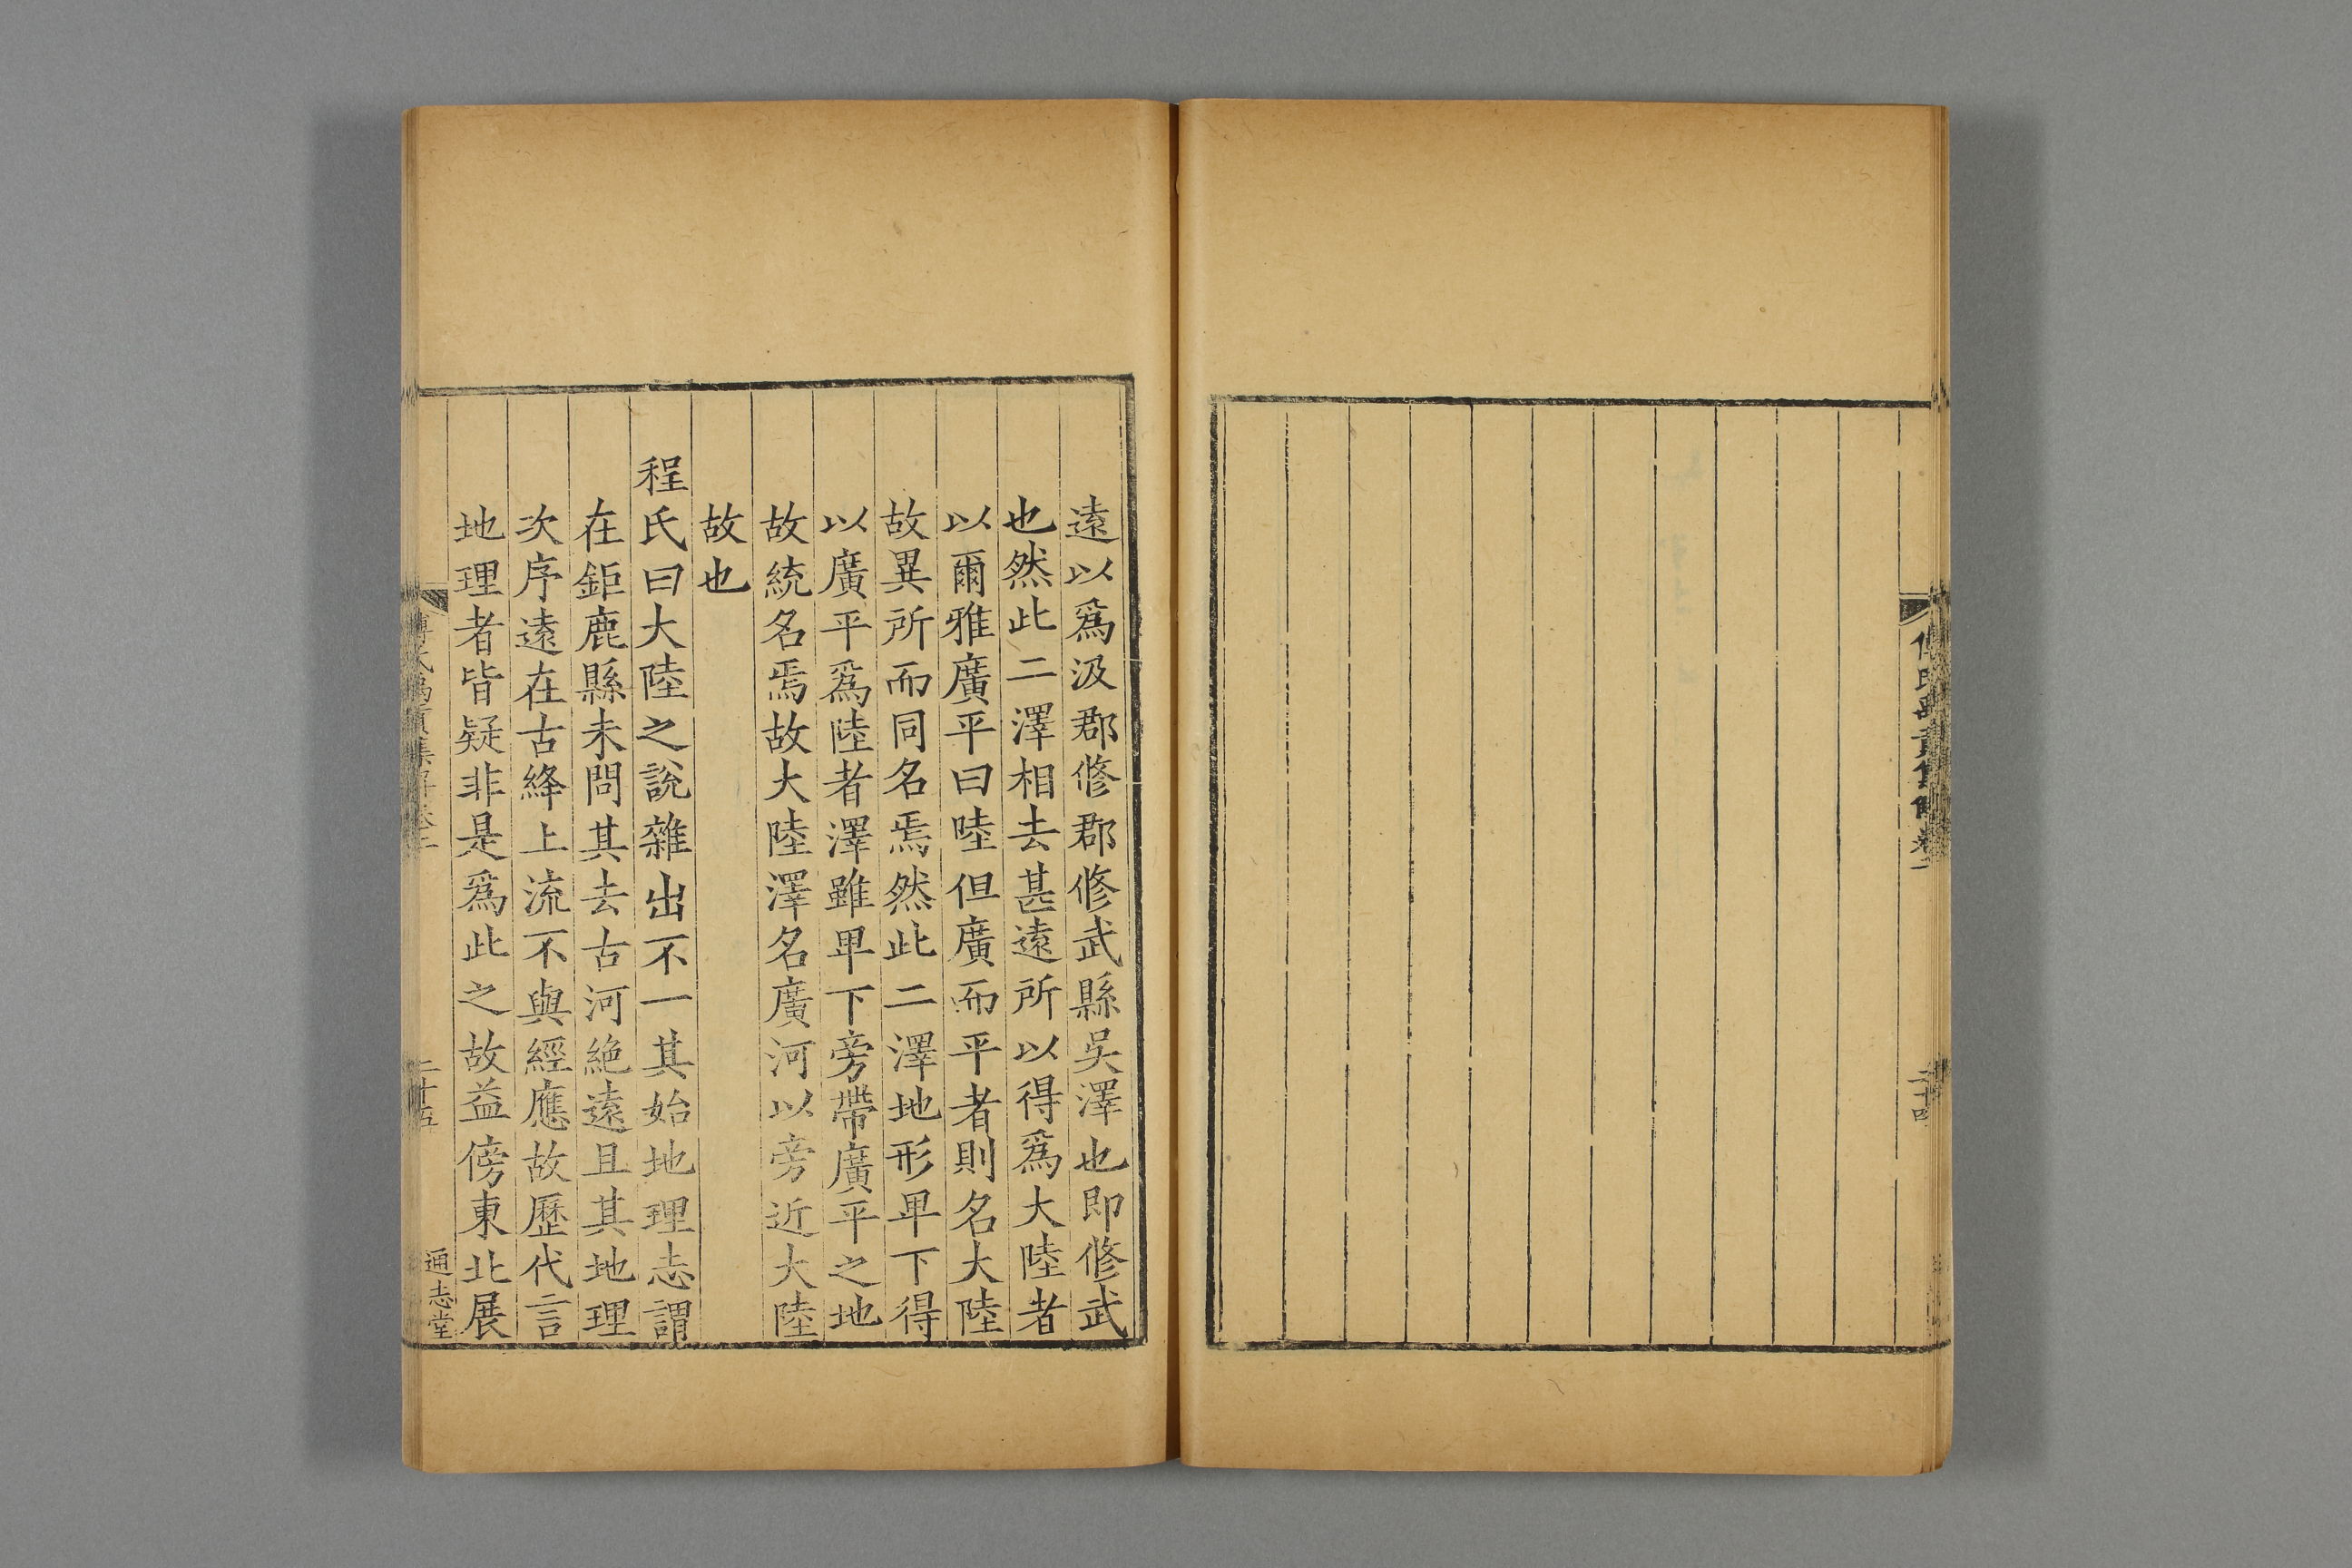 二十四
遠以爲汲郡修郡修武縣吳澤也即修武
也然此二澤相去甚遠所以得爲大陸者
以爾雅廣平曰陸但廣而平者則名大陸
故異所而同名焉然此二澤地形卑下得
以廣平爲陸者澤雖卑下旁帶廣平之地
故統名焉故大陸澤名廣河以旁近大陸
故也
程氏曰大陸之說雜出不一其始地理志謂
在鉅鹿縣未問其去古河絶遠且其地理
次序遠在古絳上流不與經應故歷代言
地理者皆疑非是爲此之故益傍東北展
二十五
通志堂